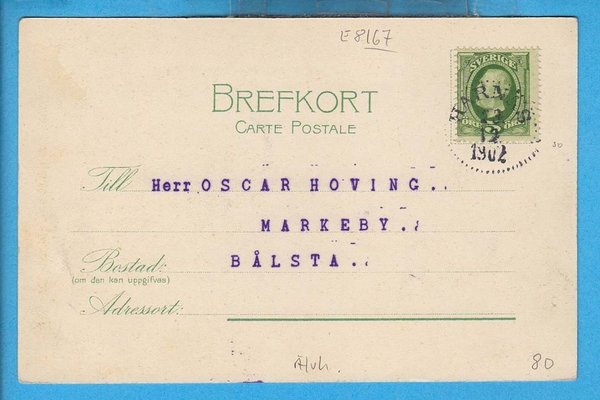 E 8167
SVERIGE
BREFKORT
CARTE POSTALE
12
1902
Till Herr OSCAR HOVING..
MARKEBY..
Bostad:
BÅLSTA..
(om den kan uppgifvas)
Adressort:
80